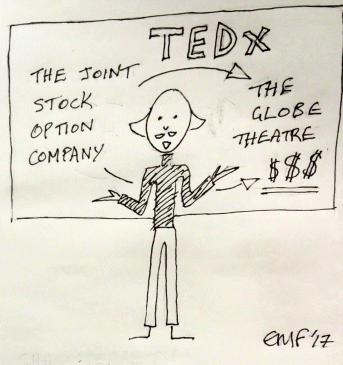 TEDX
THE JOINT
STOCK
OPTION
COMPANY
THE
GLOBE
THEATRE
$$$
EMF '17